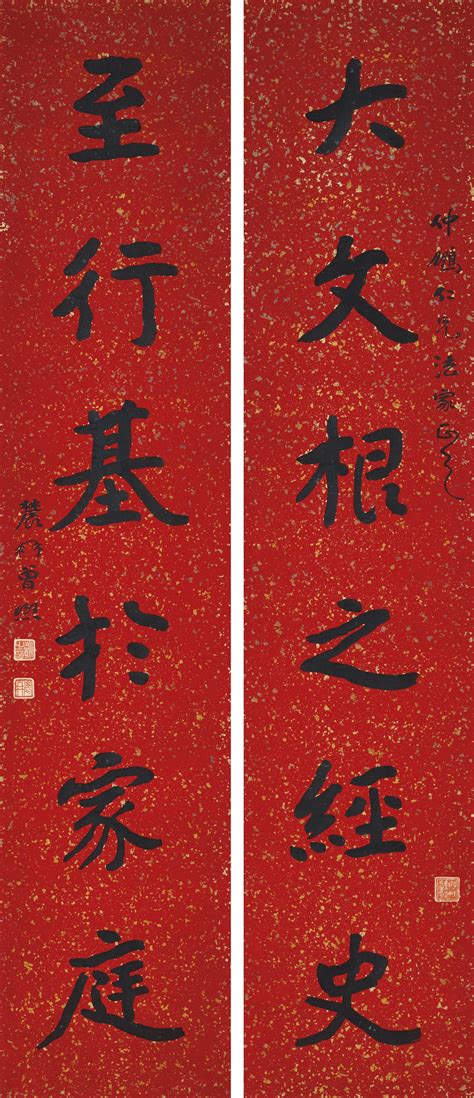 大文根之經史
仲鑣仁兄法家正之
至行基於家庭
農髯曾熙